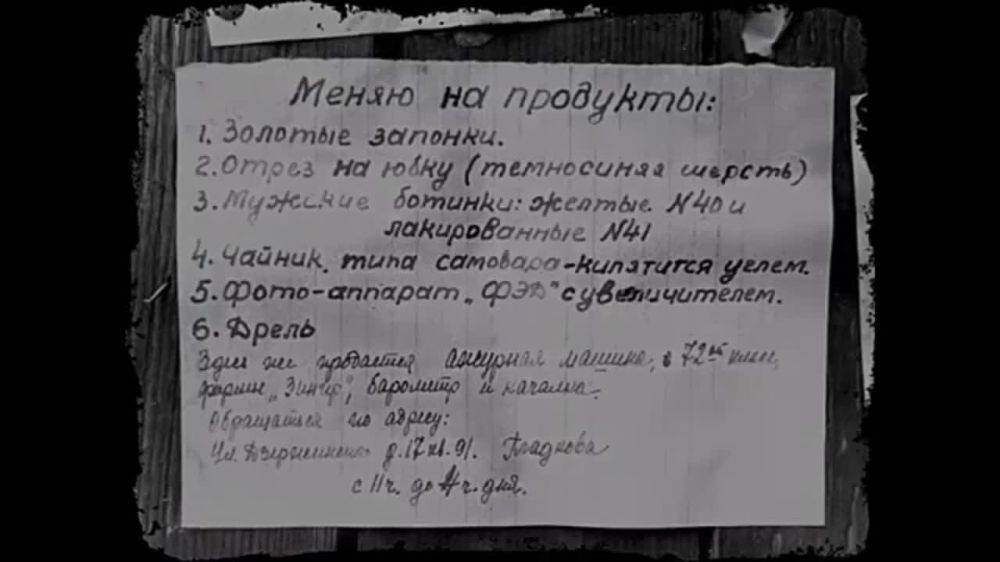 Меняю на продукты:
1. Золотые запонки.
2. Отрез на юбку (темносиняя шерсть)
3. Мужские ботинки: желтые N40 и
лакированные N41
4. Чайник типа самовара-кипятится углем.
5. Фото-аппарат „ФЭД" с увеличителем.
6. Дрель
Здесь же продается ажурная машина, в 72ой класс,
фирмы „Зингер", барометр и качалка.
Обращаться по адресу:
Ул. Дзержинского д.17 кв. 91. Гладкова
с 11ч. до 4ч. дня.